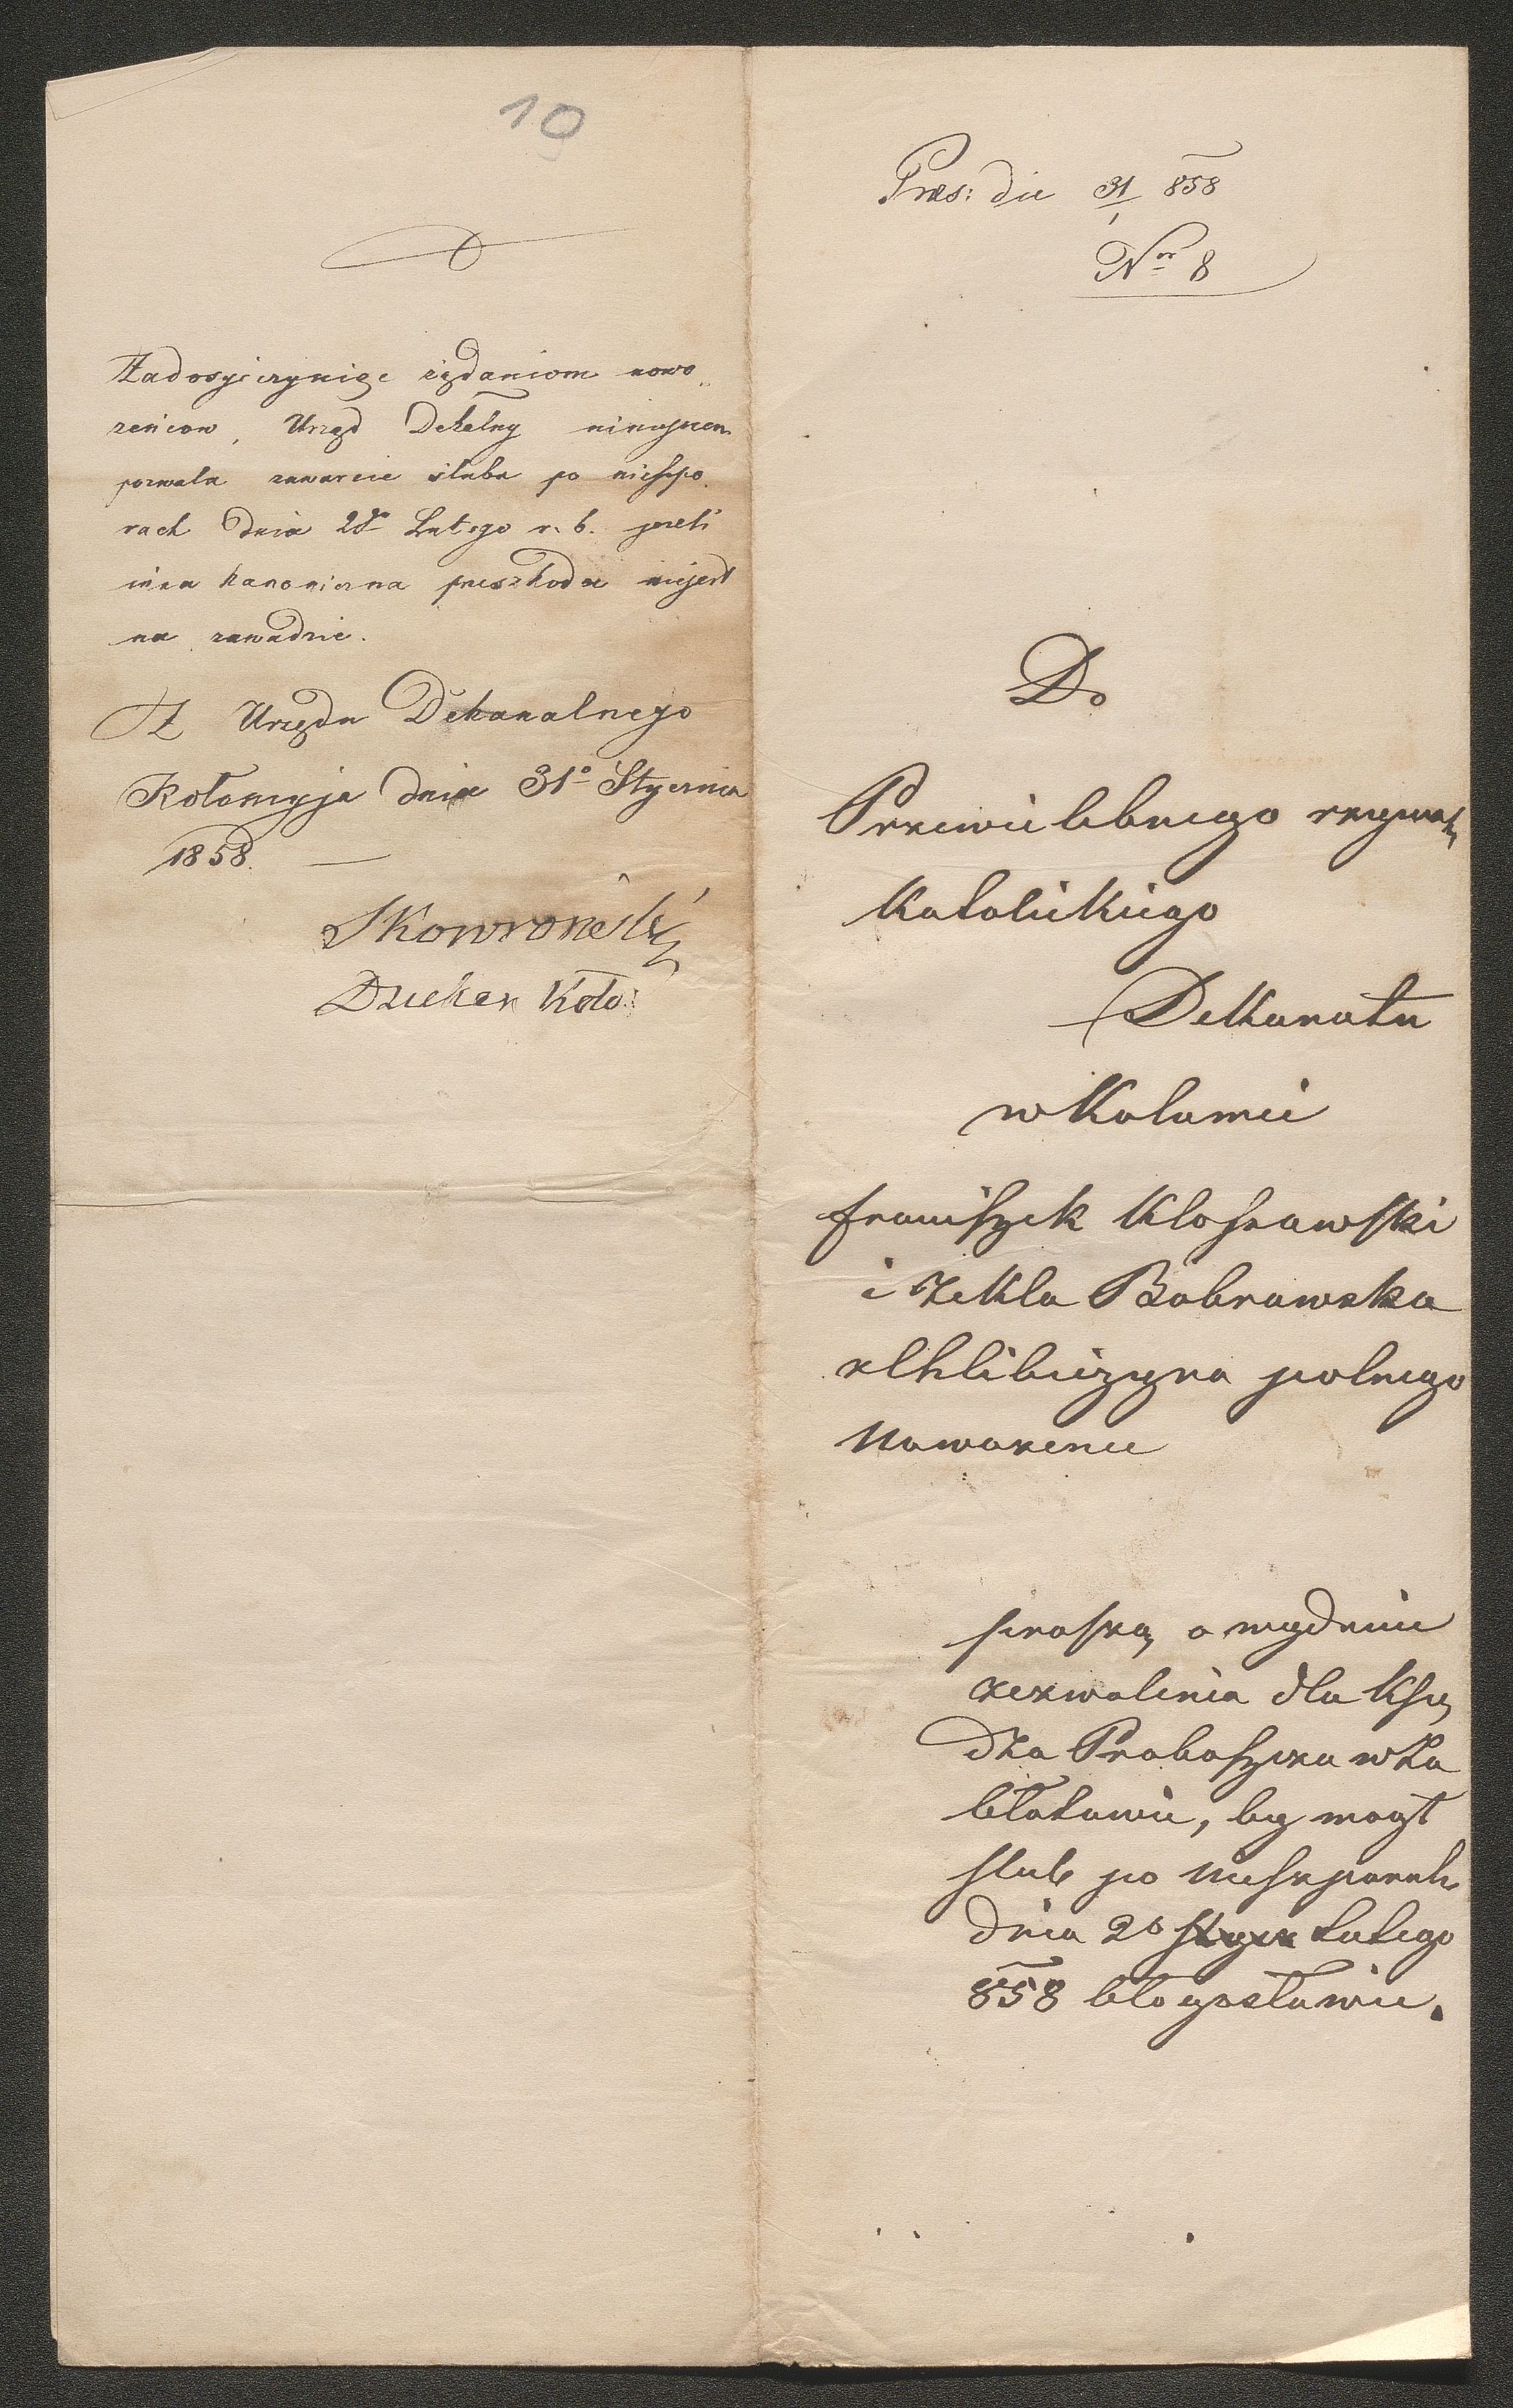 10
Zadosyćczyniąc rządaniom nowo„
żeńcow, Urząd Dekalny niniejszem
pozwala zawarcie ślubu po nieszpo„
rach dnia 2go Lutego r. b. jeżeli
inna kanoniczna przeszkoda niejest
na zawadzie.
Z Urzędu Dekanalnego
Kołomyja dnia 31o Stycznia
1858. —
Skowroński
Dziekan Koło:
Præs: die 31/1 858
Nro 8
Do
Przewielebnego rzymsk
katolickiego
Dekanatu
w Kolomei
franciszek Kloszowski
i Tekla Bobrowska
z Chlibiczyna polnego
Nowozency
proszą o wydanie
zezwolenia dla Księ
dza Proboszcza w Za
błotowie, by mogł
slub po nieszporach
dnia 2o Stycz Lutego
858 błogosławic.